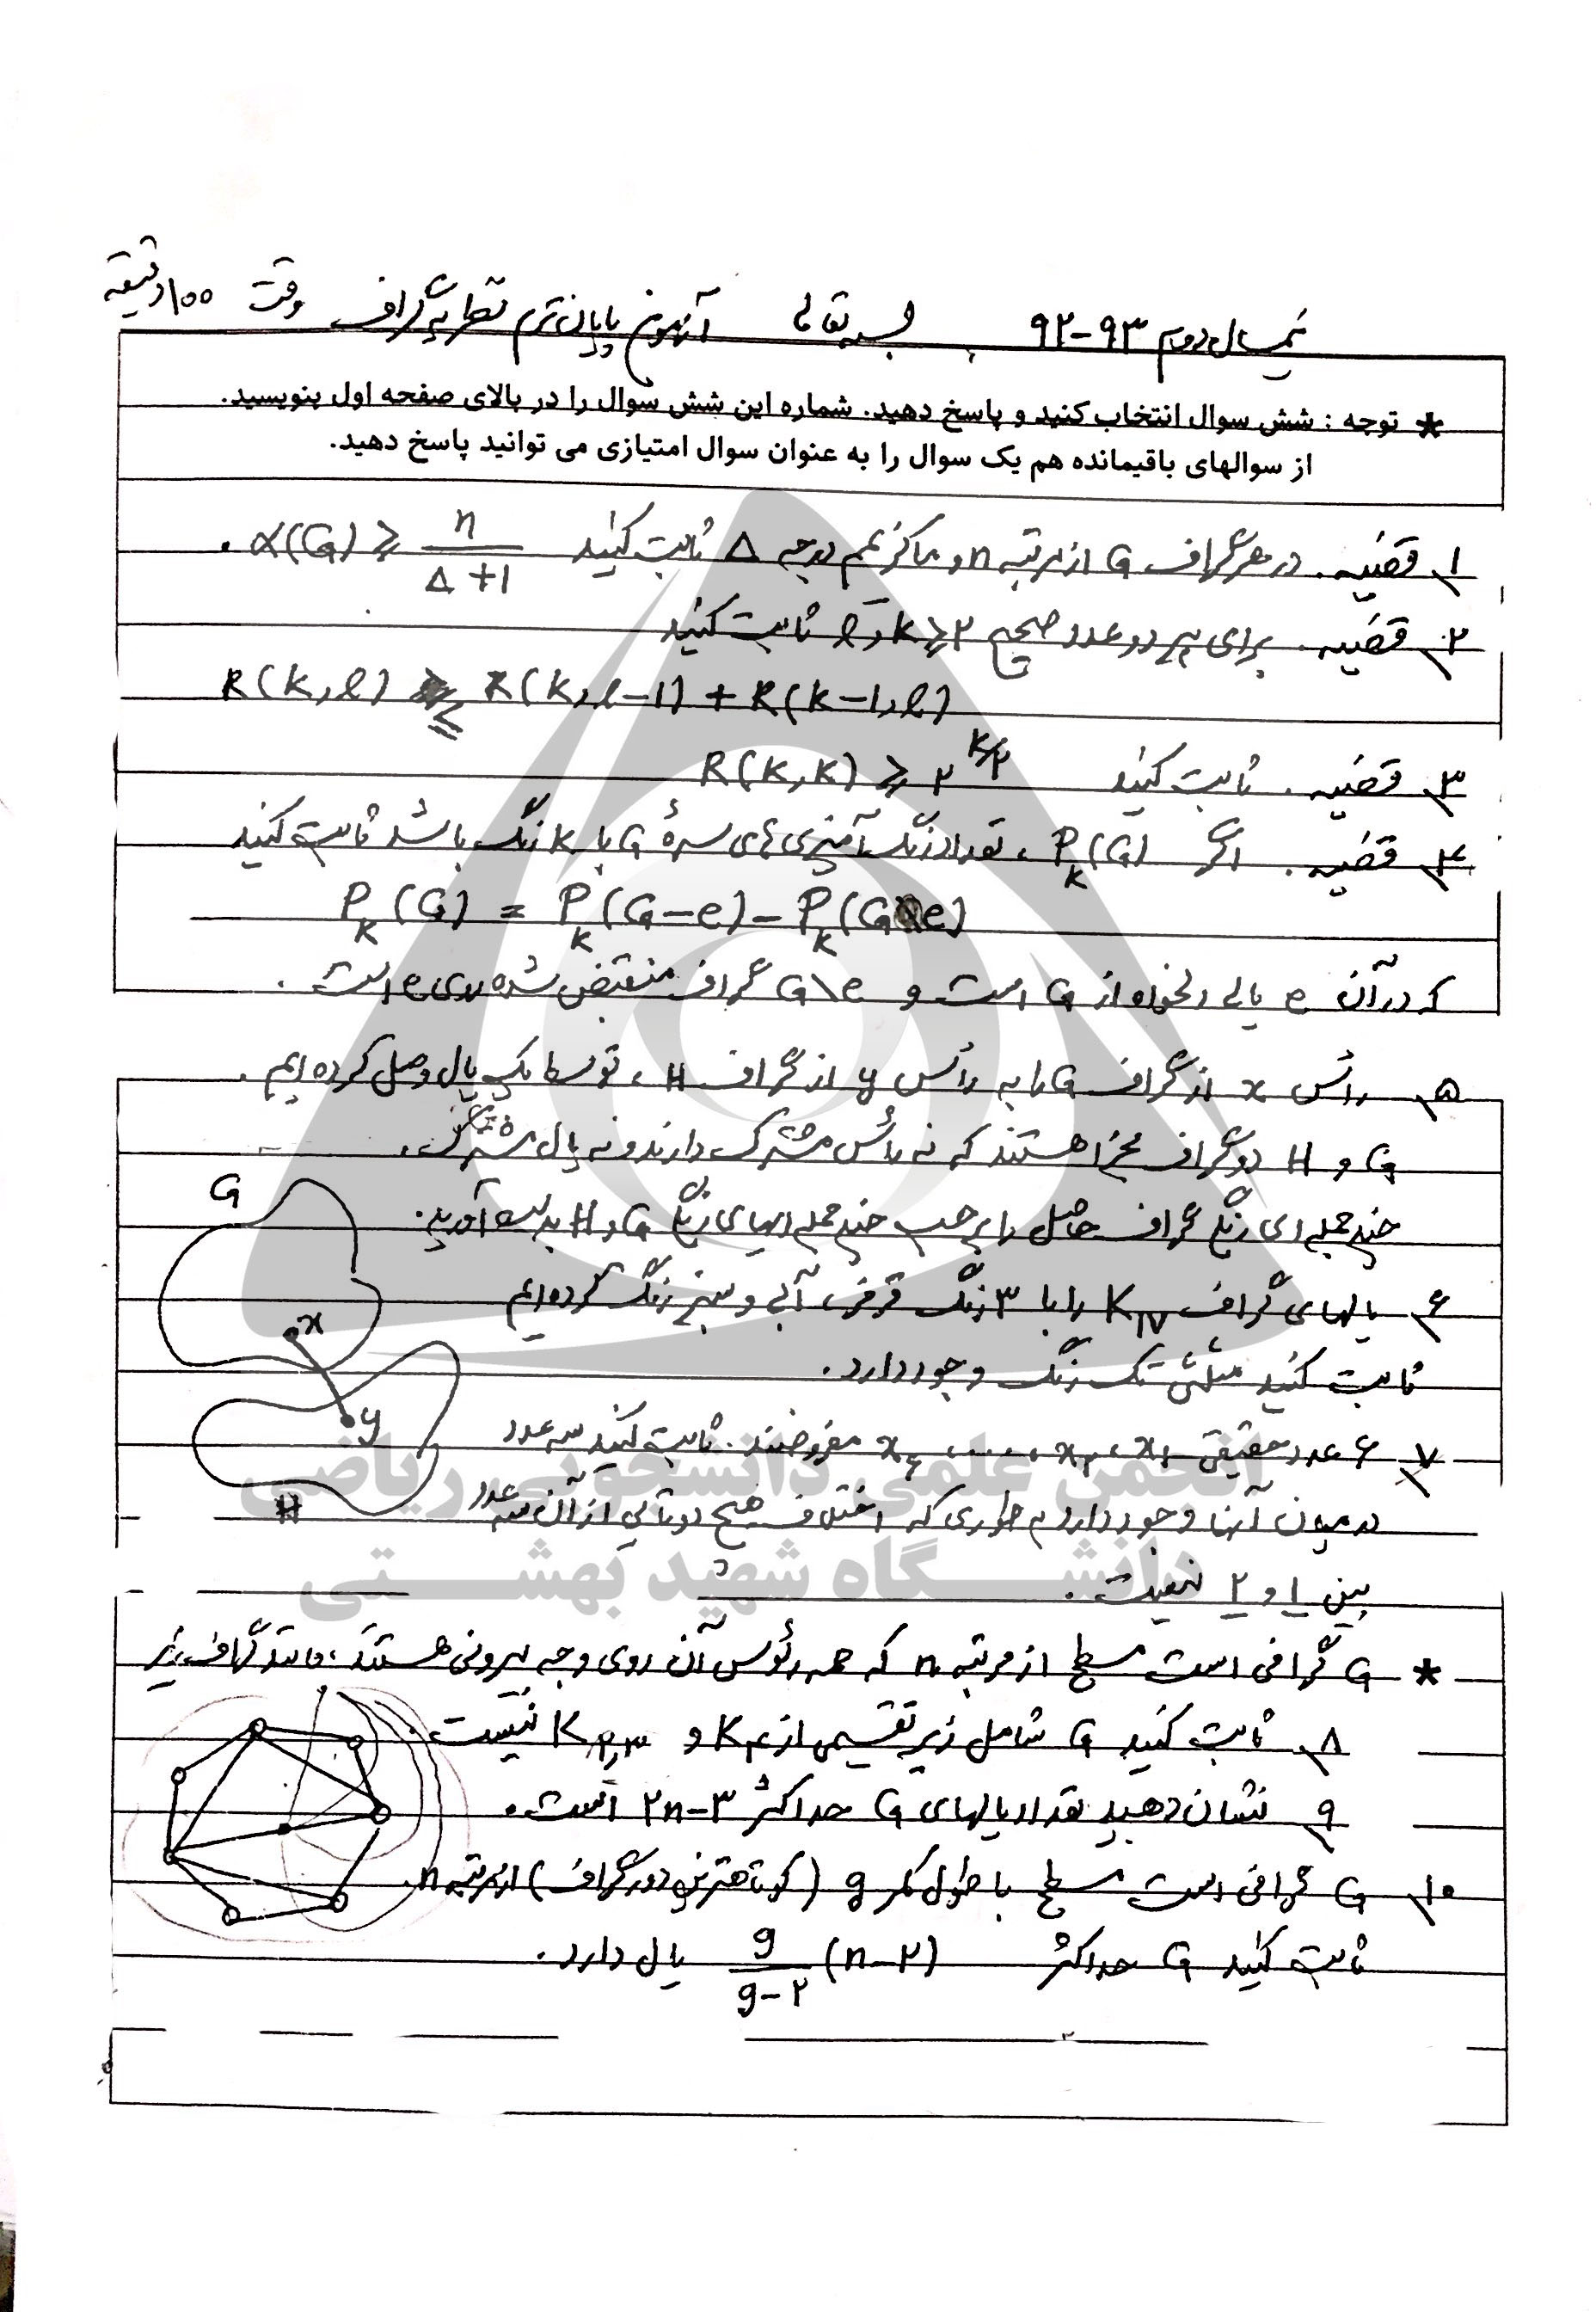 نیمسال دوم ۹۳-۹۲ بسمه تعالی آزمون پایان ترم نظریه گراف وقت ۱۰۰ دقیقه
* توجه : شش سوال انتخاب کنید و پاسخ دهید. شماره این شش سوال را در بالای صفحه اول بنویسید.
از سوالهای باقیمانده هم یک سوال را به عنوان سوال امتیازی می توانید پاسخ دهید.
۱. قضیه. در هر گراف G از مرتبه n و ماکزیمم درجه Δ ثابت کنید α(G) ≥ n/(Δ+1) .
۲. قضیه. برای هر دو عدد صحیح k, l ≥ ۲ ثابت کنید
R(k,l) ≤ R(k,l-1) + R(k-1,l)
۳. قضیه. ثابت کنید R(k,k) ≥ ۲^(k/۲)
۴. قضیه. اگر P_k(G)، تعداد رنگ آمیزی های سره G با k رنگ باشد ثابت کنید
P_k(G) = P_k(G-e) - P_k(G\e)
که در آن e یالی دلخواه از G است و G\e گراف منقبض شده روی e است .
۵. رأس x از گراف G را به رأس y از گراف H، توسط یک یال وصل کرده ایم .
G و H دو گراف مجزا هستند که نه رأس مشترک دارند و نه یال مشترک .
چندجمله ای رنگی گراف حاصل را برحسب چندجمله ایهای رنگی G و H بدست آورید.
G
x
y
H
۶. یالهای گراف K_۱۷ را با ۳ رنگ قرمز، آبی و سبز رنگ کرده ایم
ثابت کنید مثلثی تک رنگ وجود دارد .
۷. ۶ عدد حقیقی x_۱، x_۲، ....، x_۶ مفروضند. ثابت کنید سه عدد
در میان آنها وجود دارد به طوری که اختلاف هیچ دوتایی از آن سه عدد
بین ۱ و ۲ نیست .
* G گرافی است مسطح از مرتبه n که همه رئوس آن روی وجه بیرونی هستند، مانند گراف زیر
۸. ثابت کنید G شامل زیرتقسیمی از K_۴ و K_۲,۳ نیست .
۹. نشان دهید تعداد یالهای G حداکثر ۲n-۳ است .
۱۰. G گرافی است مسطح با طول کمر g (کوتاهترین دور گراف) از مرتبه n.
ثابت کنید G حداکثر g/(g-۲) (n-۲) یال دارد .
انجمن علمی دانشجویی ریاضی
دانشگاه شهید بهشتی